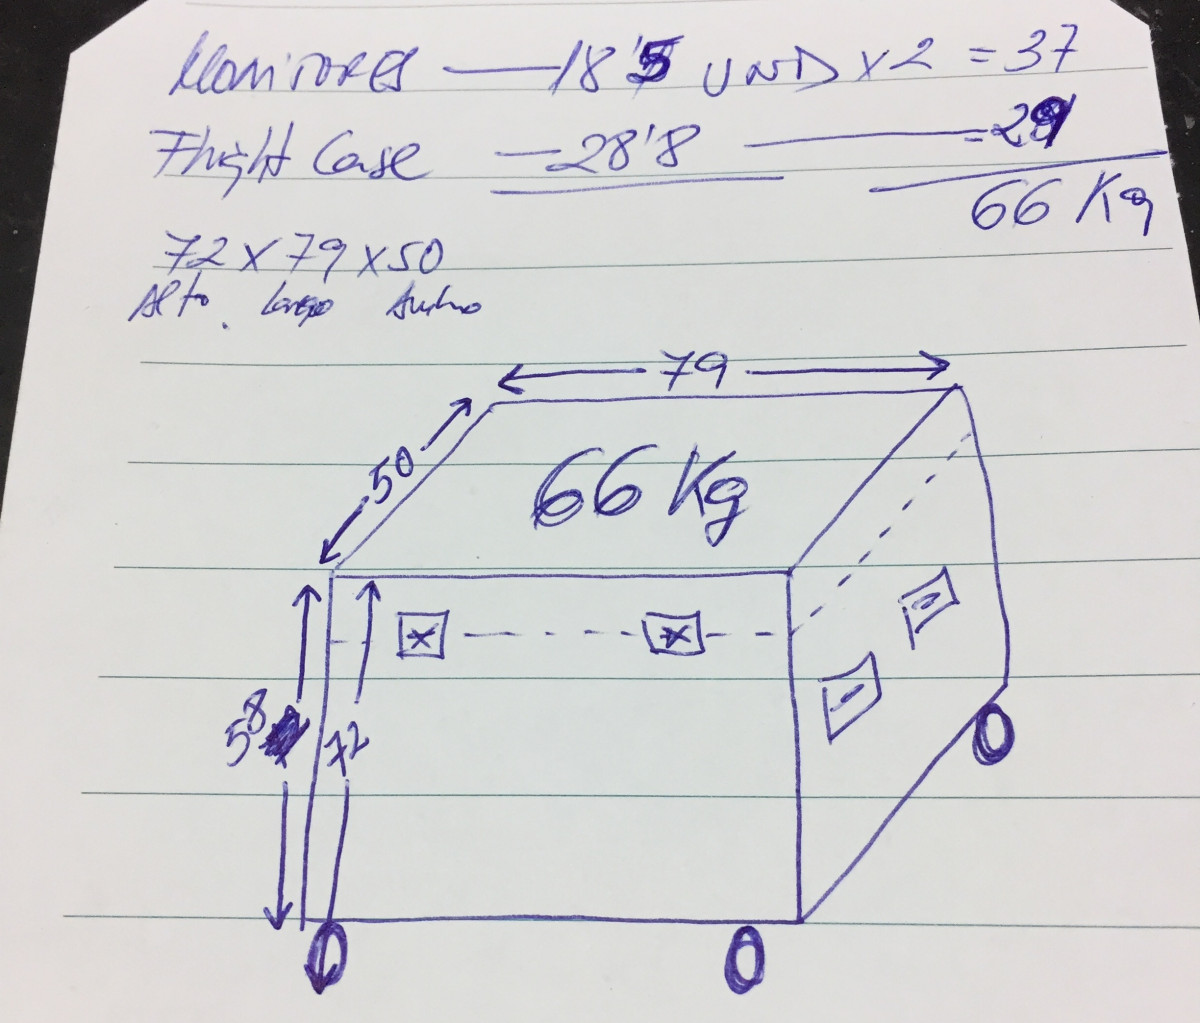 Monitores — 18'5 UND x 2 = 37
Flight Case — 28'8 — = 29
66 Kg
72 x 79 x 50
Alto. Largo Ancho
79
50
66 Kg
58
72